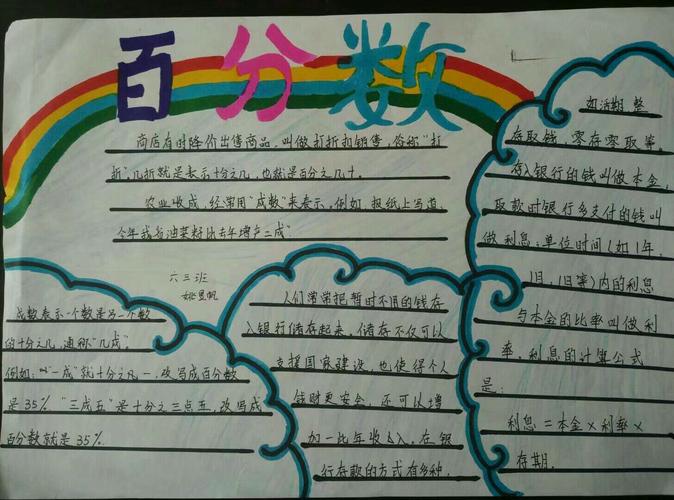 百分数
商店有时降价出售商品,叫做打折扣销售,俗称"打
折"。几折就是表示十分之几,也就是百分之几十。
农业收成,经常用"成数"来表示。例如,报纸上写道
今年我省油菜籽比去年增产二成"
六三班
成数表示一个数是另一个数
的十分之几,通称"几成"
例如:"一成"就十分之一,改写成百分数
是35%"三成五"是十分之三点五,改写成
百分数就是35%.
人们常常把暂时不用的钱存
入银行储存起来。储存不仅可以
支援国家建设,也使得个人
钱财更安全,还可以增
加一比年收入。在银
行存款的方式有多种,
如活期,整
存取钱,零存零取等。
存入银行的钱叫做本金,
取款时银行多支付的钱叫
做利息,单位时间(如1年、
1月,1日等)内的利息
与本金的比率叫做利
率。利息的计算公式
是:
利息=本金×利率×
存期.